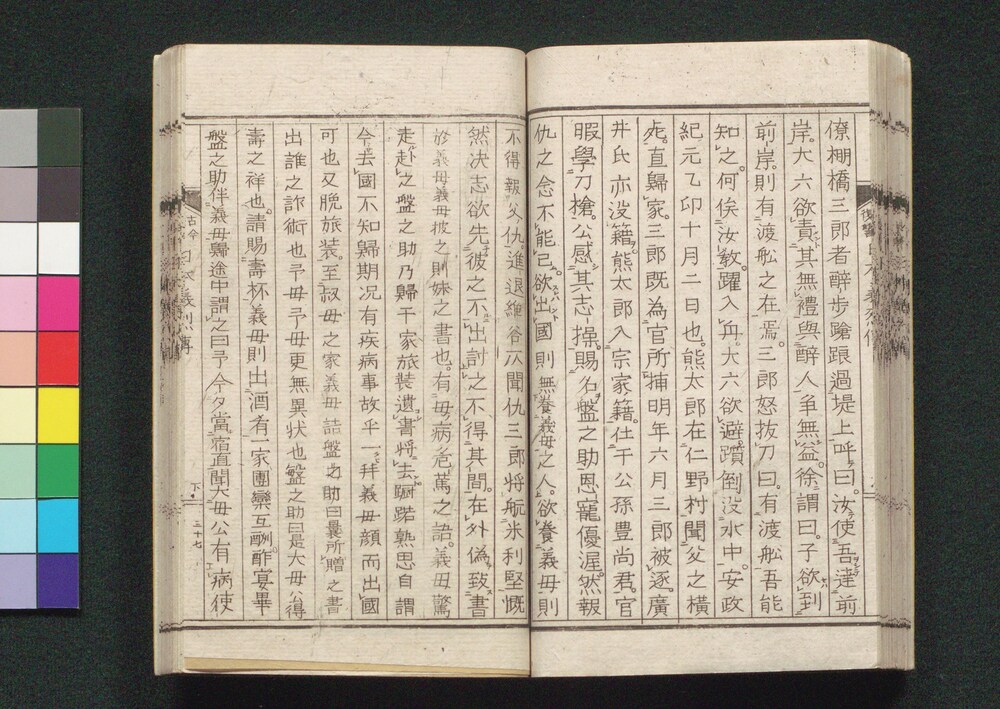 僚棚橋三郎者醉步蹌踉過堤上呼曰汝使吾達前
岸大六欲責其無禮與醉人爭無益徐謂曰子欲到
前岸則有渡舩之在焉三郎怒拔刀曰有渡舩吾能
知之何俟汝敎躍入舟大六欲避躓倒沒水中安政
紀元乙卯十月二日也熊太郎在仁野村聞父之橫
死直歸家三郎既為官所捕明年六月三郎被逐廣
井氏亦沒籍熊太郎入宗家籍仕于公孫豊尚君官
暇學刀槍公感其志操賜名盤之助恩寵優渥然報
仇之念不能已欲出國則無養義母之人欲養義母則
不得報父仇進退維谷亦聞仇三郎將航米利堅慨
然決志欲先彼之不出討之不得其間在外偽致書
於義母義母披之則妹之書也有母病危篤之語義母驚
走赴之盤之助乃歸于家旅裝遺書將去躕躇熟思自謂
今去國不知歸期況有疾病事故乎一拜義母顏而出國
可也又脫旅裝至叔母之家義母詰盤之助曰曩所贈之書
出誰之詐術也予母予母更無異狀也盤之助曰是大母公得
壽之祥也請賜壽杯義母則出酒肴一家團欒互酬酢宴畢
盤之助伴義母歸途中謂之曰予今夕當宿直聞大母公有病使
古今
下
二十七